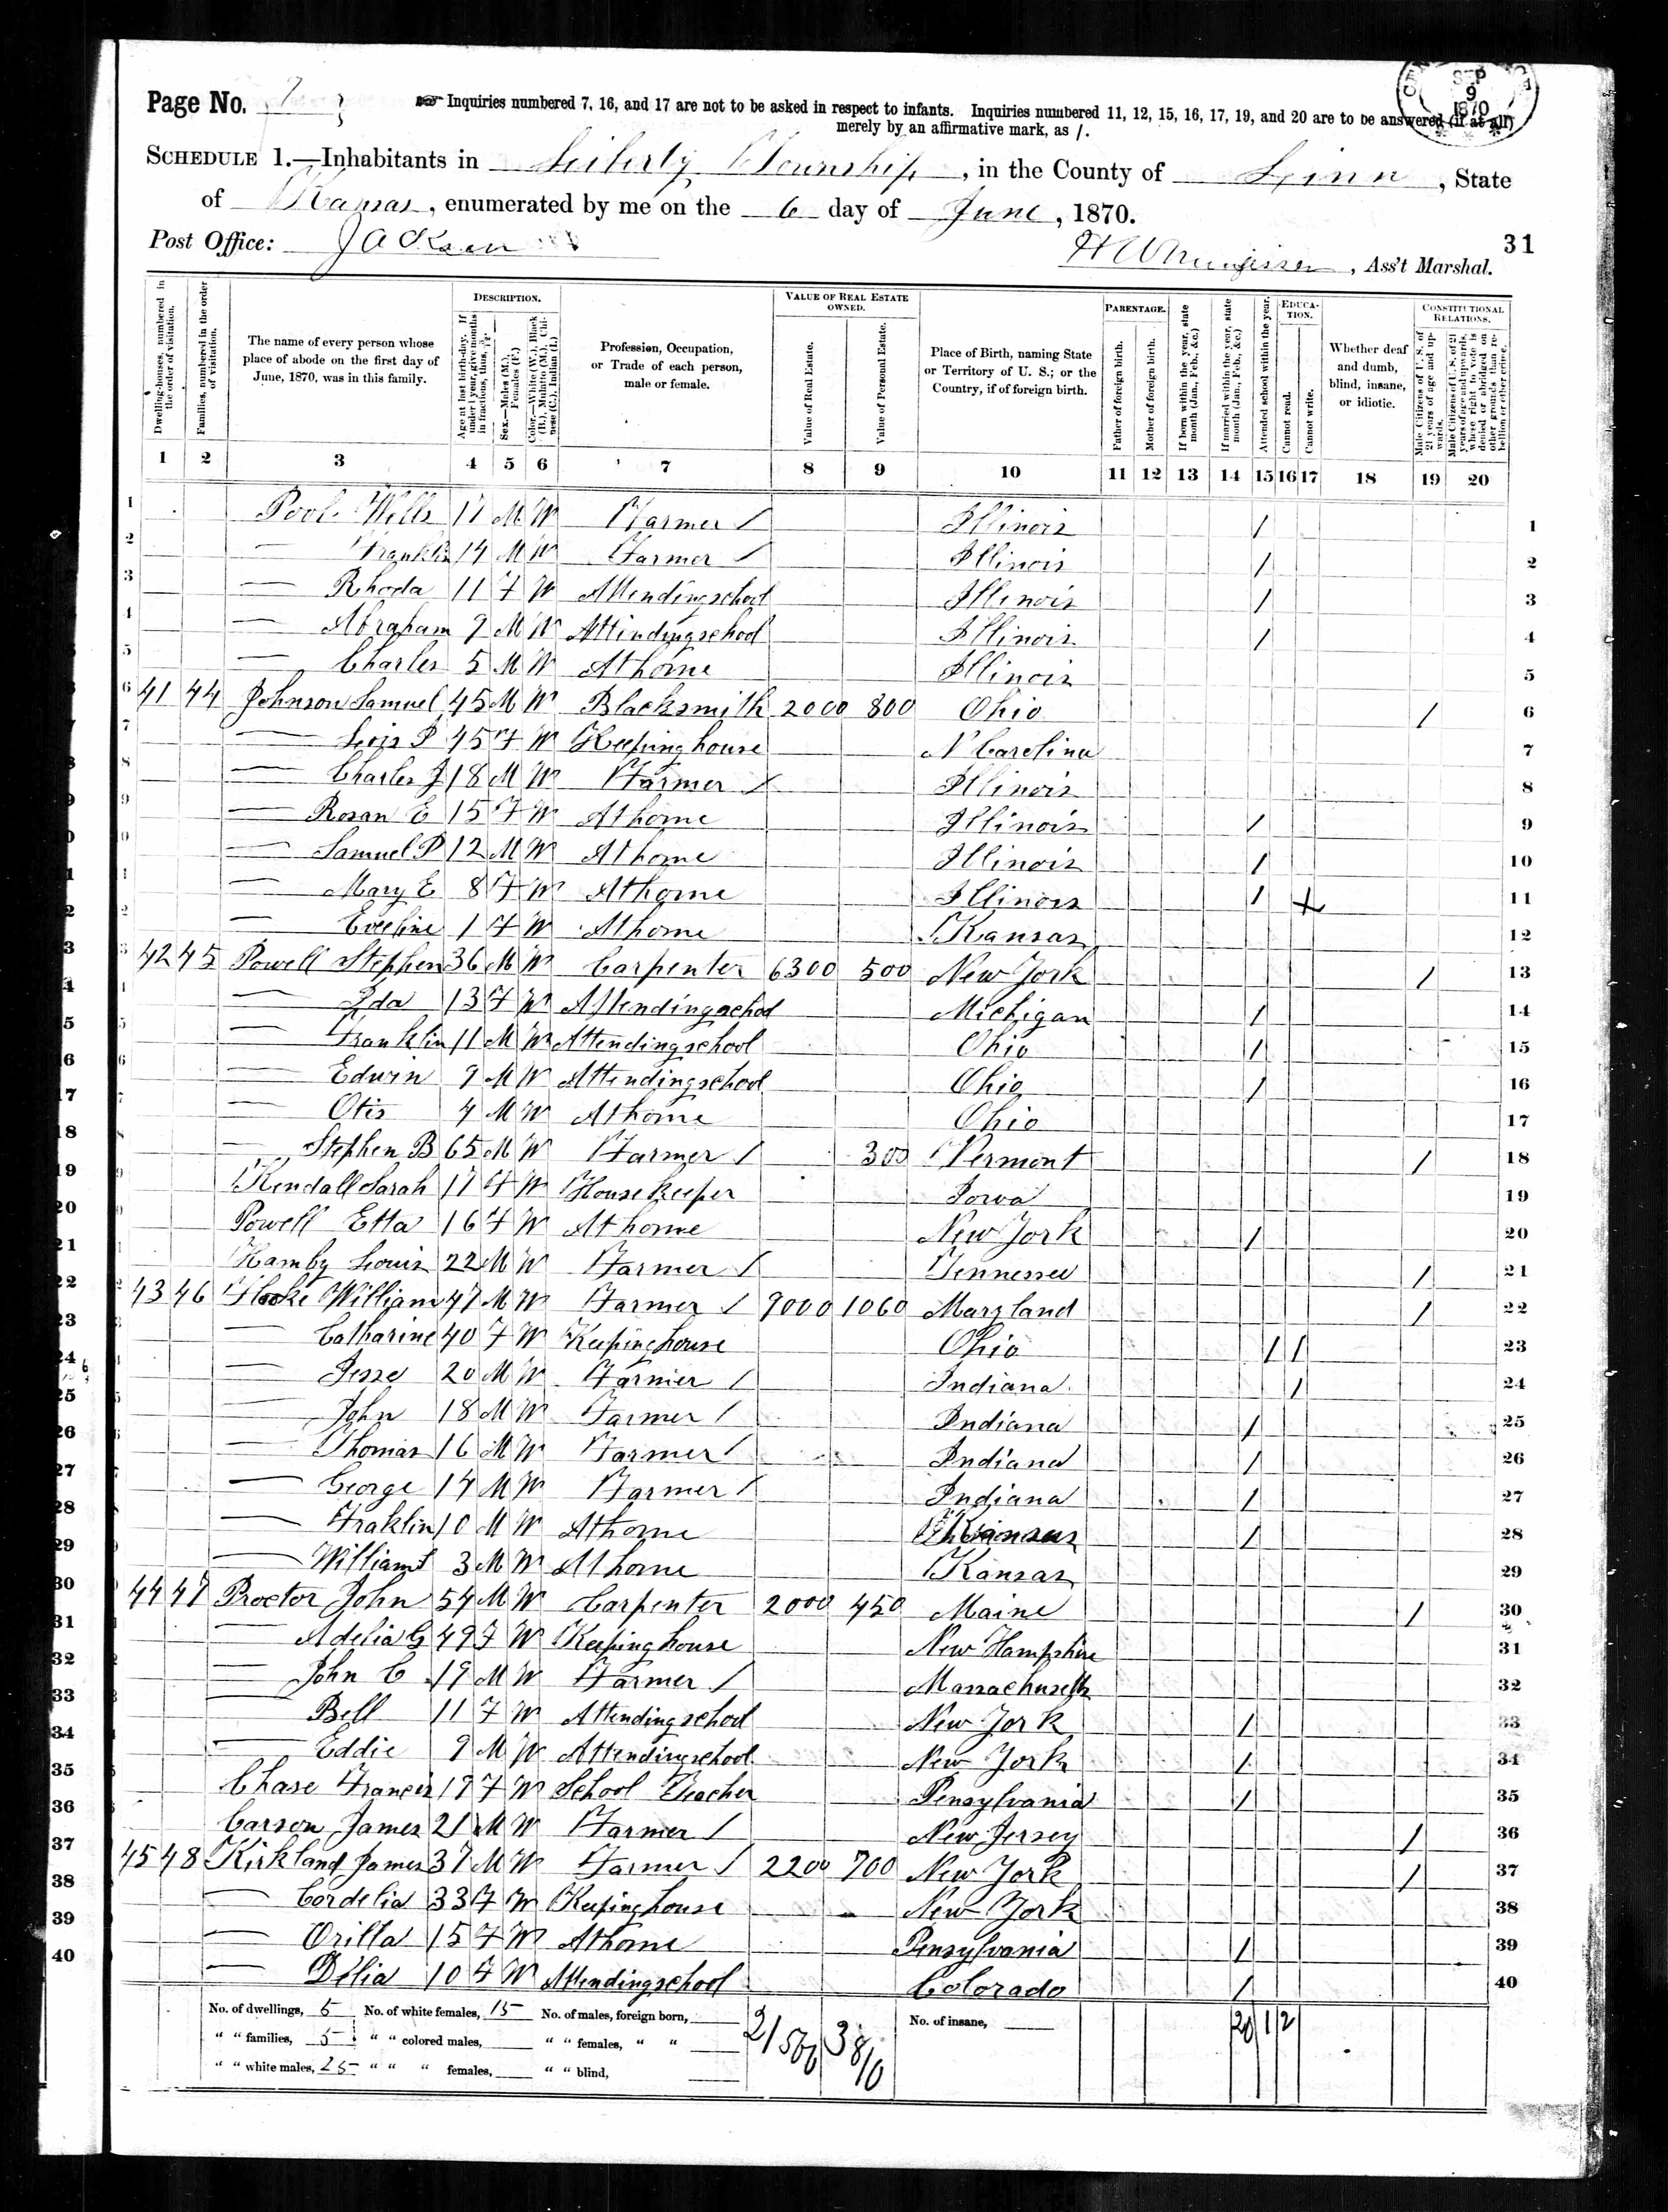 Page No. 7
☞ Inquiries numbered 7, 16, and 17 are not to be asked in respect to infants. Inquiries numbered 11, 12, 15, 16, 17, 19, and 20 are to be answered (if at all)
merely by an affirmative mark, as /.
SEP 9 1870
SCHEDULE 1.—Inhabitants in Liberty Township, in the County of Linn, State
of Kansas, enumerated by me on the 6 day of June, 1870.
Post Office: Jackson
, Ass't Marshal.
31
Dwelling-houses, numbered in the order of visitation.
Families, numbered in the order of visitation.
The name of every person whose place of abode on the first day of June, 1870, was in this family.
DESCRIPTION.
Age at last birth-day. If under 1 year, give months in fractions, thus, 3/12.
Sex.—Males (M.), Females (F.)
Color.—White (W.), Black (B.), Mulatto (M.), Chinese (C.), Indian (I.)
Profession, Occupation, or Trade of each person, male or female.
VALUE OF REAL ESTATE OWNED.
Value of Real Estate.
Value of Personal Estate.
Place of Birth, naming State or Territory of U. S.; or the Country, if of foreign birth.
PARENTAGE.
Father of foreign birth.
Mother of foreign birth.
If born within the year, state month (Jan., Feb., &c.)
If married within the year, state month (Jan., Feb., &c.)
Attended school within the year.
EDUCATION.
Cannot read.
Cannot write.
Whether deaf and dumb, blind, insane, or idiotic.
CONSTITUTIONAL RELATIONS.
Male Citizens of U. S. of 21 years of age and upwards.
Male Citizens of U. S. of 21 years of age and upwards, where right to vote is denied or abridged on other grounds than rebellion or other crime.
1 2 3 4 5 6 7 8 9 10 11 12 13 14 15 16 17 18 19 20
1 Pool Wills 17 M W Farmer / Illinois / 1
2 — Franklin 14 M W Farmer / Illinois / 2
3 — Rhoda 11 F W Attending school Illinois / 3
4 — Abraham 9 M W Attending school Illinois / 4
5 — Charles 5 M W At home Illinois 5
6 41 44 Johnson Samuel 45 M W Blacksmith 2000 800 Ohio / 6
7 — Lois P 45 F W Keeping house N Carolina 7
8 — Charles J 18 M W Farmer / Illinois 8
9 — Rosan E 15 F W At home Illinois / 9
10 — Samuel P 12 M W At home Illinois / 10
11 — Mary E 8 F W At home Illinois / + 11
12 — Eveline 1 F W At home Kansas 12
13 42 45 Powell Stephen 36 M W Carpenter 6300 500 New York / 13
14 — Ida 13 F W Attending school Michigan / 14
15 — Franklin 11 M W Attending school Ohio / 15
16 — Edwin 9 M W Attending school Ohio / 16
17 — Otis 4 M W At home Ohio 17
18 — Stephen B 65 M W Farmer / 300 Vermont / 18
19 Kendall Sarah 17 F W House Keeper Iowa 19
20 Powell Etta 16 F W At home New York / 20
21 Hamby Louis 22 M W Farmer / Tennessee / 21
22 43 46 William 47 M W Farmer / 9000 1060 Maryland / 22
23 — Catharine 40 F W Keeping house Ohio / / 23
24 — Jesse 20 M W Farmer / Indiana / 24
25 — John 18 M W Farmer / Indiana / 25
26 — Thomas 16 M W Farmer / Indiana / 26
27 — George 14 M W Farmer / Indiana / 27
28 — Fraklin 10 M W At home Kansas / 28
29 — William S 3 M W At home Kansas 29
30 44 47 Proctor John 54 M W Carpenter 2000 450 Maine / 30
31 — Adelia G 49 F W Keeping house New Hampshire 31
32 — John C 19 M W Farmer / Massachusetts 32
33 — Bell 11 F W Attending school New York / 33
34 — Eddie 9 M W Attending school New York / 34
35 Chase Francis 19 F W School Teacher Pensylvania / 35
36 Carson James 21 M W Farmer / New Jersey / 36
37 45 48 Kirkland James 37 M W Farmer / 2200 700 New York / 37
38 — Cordelia 33 F W Keeping house New York 38
39 — Orilla 15 F W At home Pensylvania / 39
40 — Delia 10 F W Attending school Colorado / 40
No. of dwellings, 5 No. of white females, 15 No. of males, foreign born, No. of insane,
" " families, 5 " " colored males, " " females, " "
" " white males, 25 " " " females, " " blind,
21500 3810 20 1 2